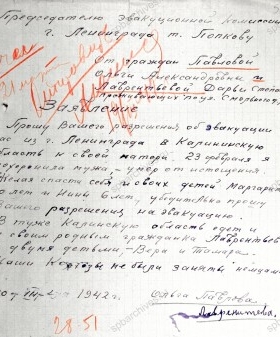 Председателю эвакуационной комиссии
г. Ленинграда т. Попкову
От граждан Павловой
Ольги Александровны и
Лаврентьевой Дарьи Степа
проживающих по ул. Смольного
Заявление
Прошу Вашего разрешения об эвакуации
нас из г. Ленинграда в Калининскую
область к своей матери 23 февраля я
похоронила мужа, умер от истощения.
Желая спасти себя и своих детей Маргарит
лет и Нини 6 лет, убедительно прошу
Вашего разрешения на эвакуацию.
В туже Калинскую область едет и
к своим родным гражданка Лаврентьев
с двумя детьми, - Вера и Тамара.
не были заняты
1942 г. Ольга Павлова
Лаврентьева
28 51